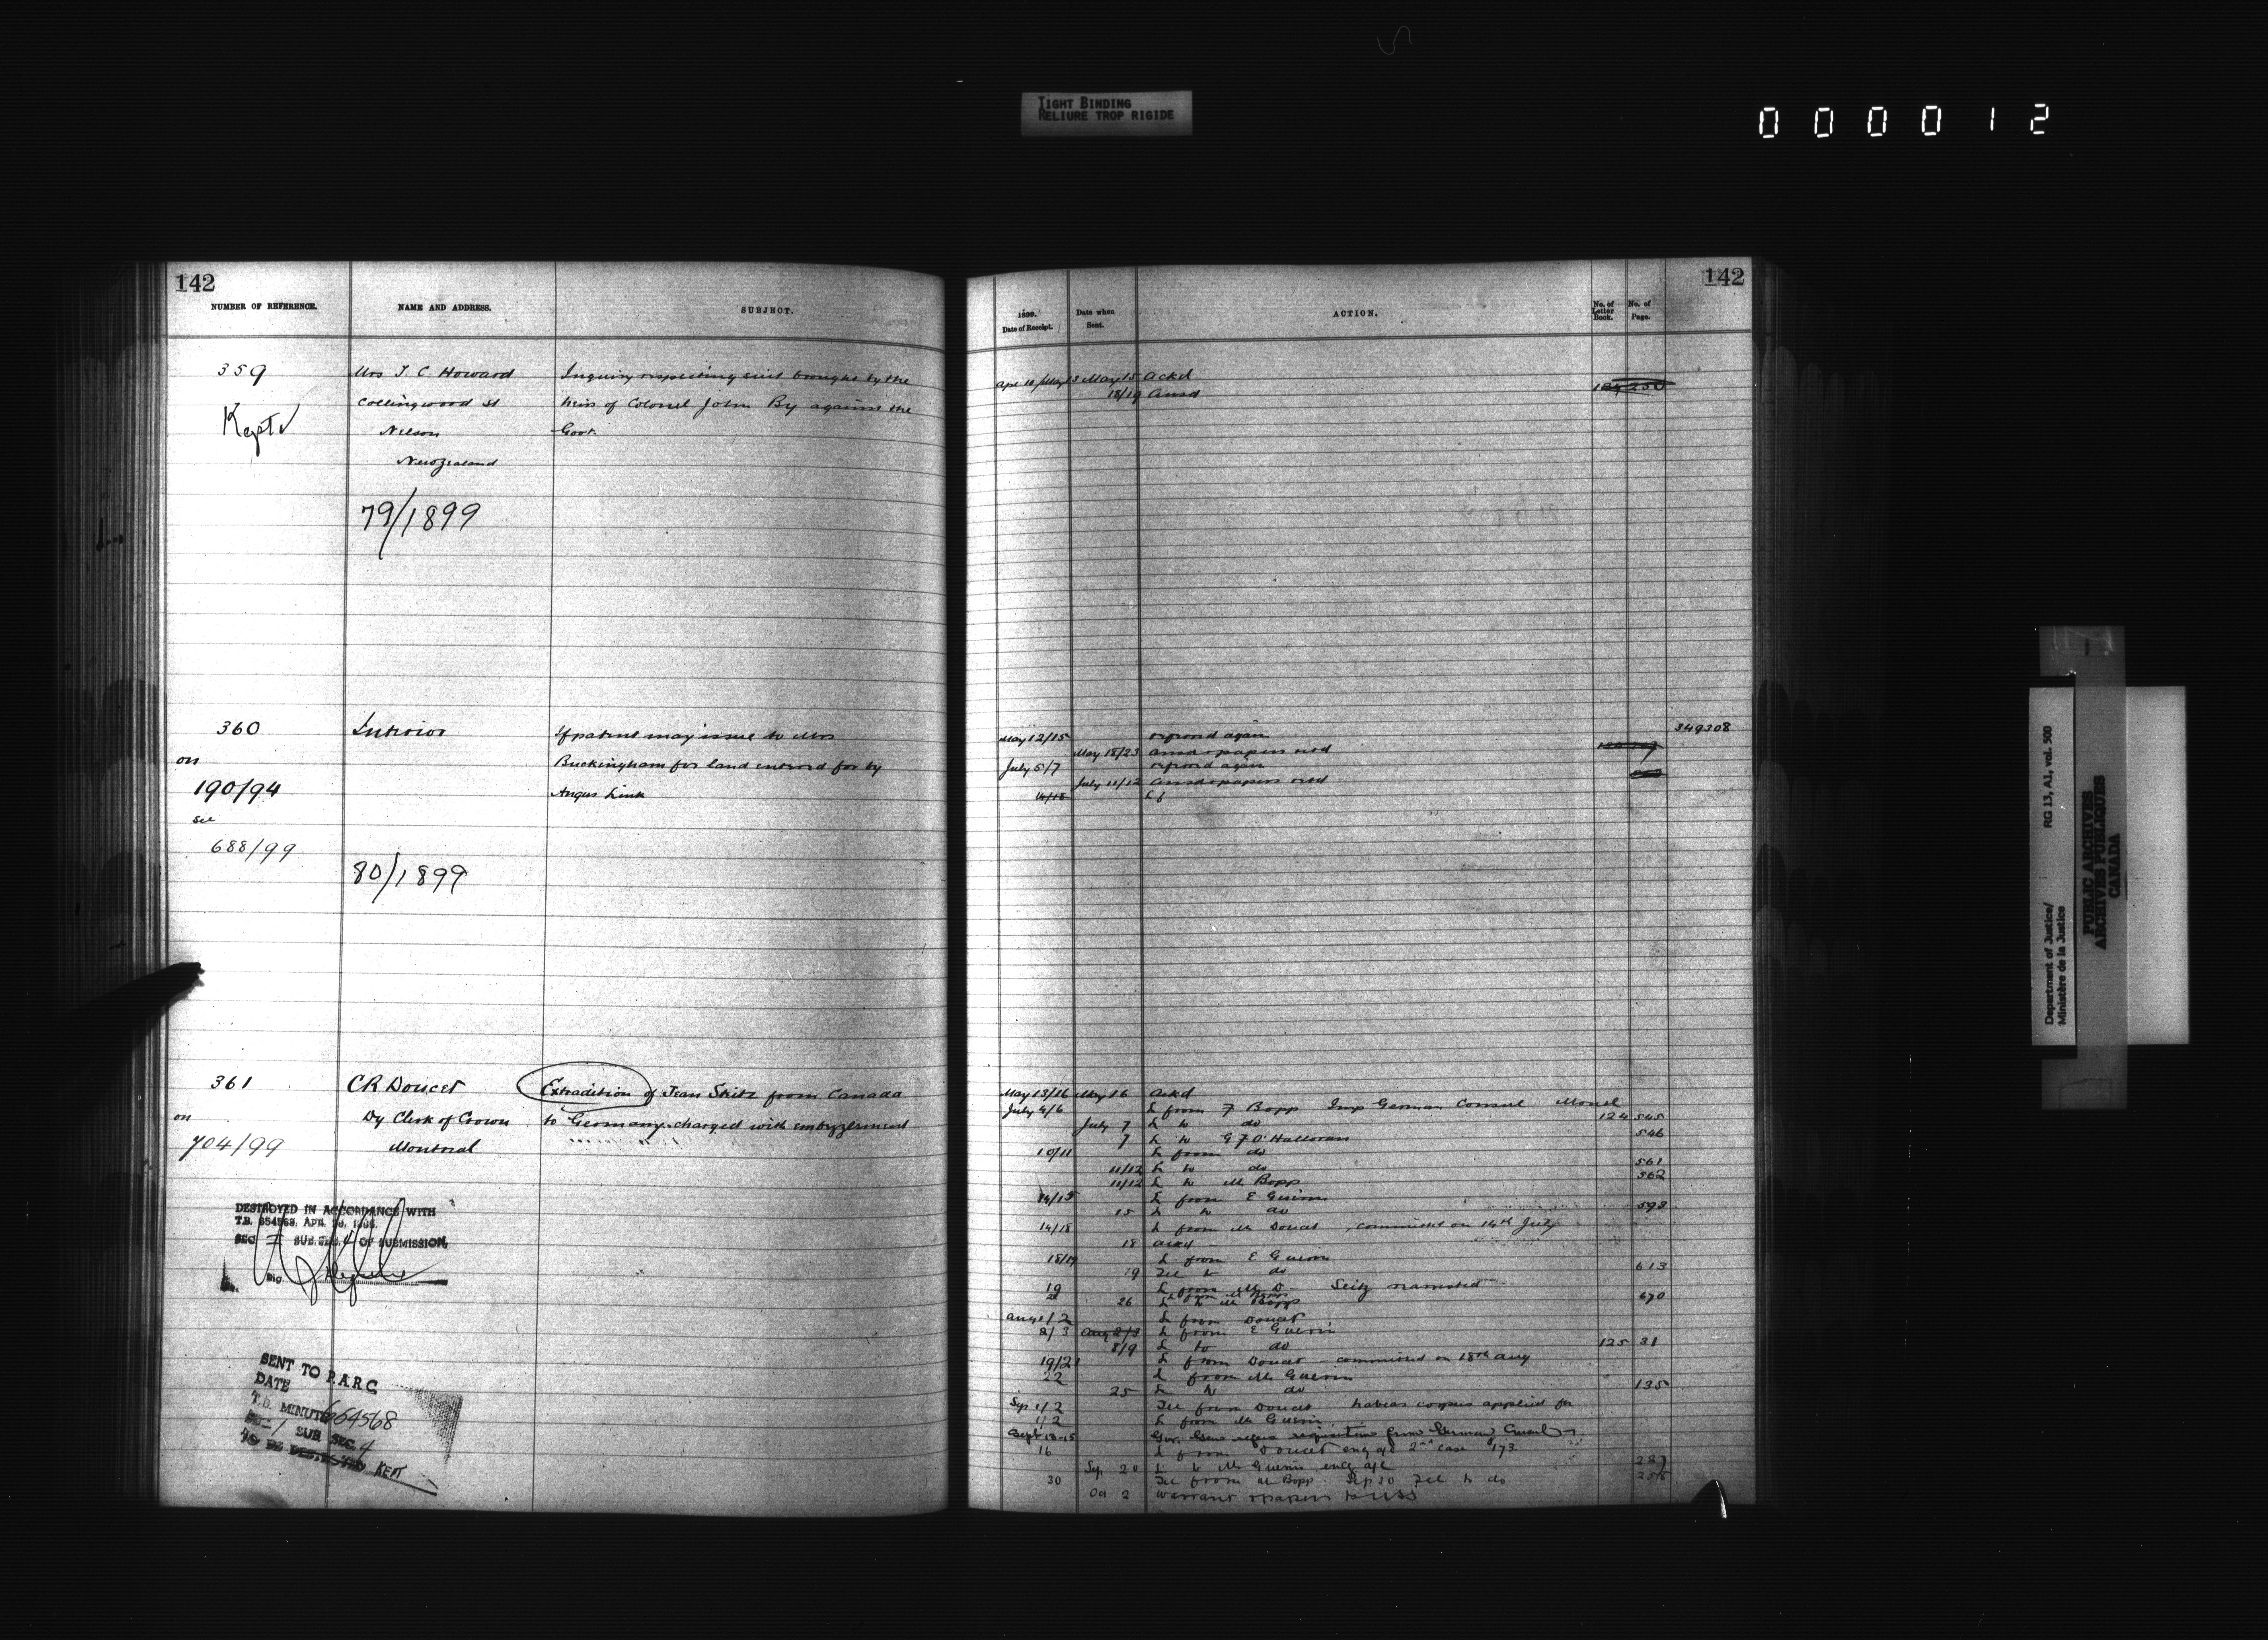 TIGHT BINDING
RELIURE TROP RIGIDE
000012
142
NUMBER OF REFERENCE.
NAME AND ADDRESS.
SUBJECT.
359
Kept
Mrs J C Howard
Collingwood St
Nelson
New Zealand
79/1899
Inquiry respecting suit brought by the
heirs of Colonel John By against the
Govt.
360
on
190/94
see
688/99
Interior
80/1899
If patent may issue to Mrs
Buckingham for land entered for by
Angus Link
361
on
704/99
CR Doucet
Dy Clerk of Crown
Montreal
Extradition of Jean Seitz from Canada
to Germany charged with embezzlement
DESTROYED IN ACCORDANCE WITH
T.B. 654563, APR.
SEC SUB.SEC. 4 OF SUBMISSION.
Sig.
SENT TO P.A.R.C
DATE
T.B. MINUTE 664568
SEC 1 SUB SEC. 4
TO BE DESTROYED KEPT
142
1899.
Date of Receipt.
Date when
Sent.
ACTION.
No. of
Letter
Book.
No. of
Page.
Apr 10/May 13 May 15 Ackd
18/19 Ansd
349308
May 12/15 referred again
May 18/23 Ansd & papers retd
July 5/7 referred again
July 11/12 Ansd & papers retd
14/15 L f
May 13/16 May 16 Ackd
July 4/6 L from F Bopp Imp German Consul Montreal
July 7 L to do 124 545
7 L to G F O'Halloran 546
10/11 L from do
11/12 L to do 561
11/12 L to M Bopp 562
14/15 L from E Guerin
15 L to do 593
14/18 L from M Doucet, committed on 14th July
18 Ackd
18/19 L from E Guerin
19 Tel to do 613
19 L from M D — Seitz rearrested
L from M Bopp
26 L to M Bopp 670
Aug 1/2 L from Doucet
2/3 Aug 2/3 L from E Guerin
8/9 L to do 125 31
19/21 L from Doucet — committed on 18th Aug
22 L from M Guerin
25 L to do 135
Sep 1/2 Tel from Doucet habeas corpus applied for
1/2 L from M Guerin
Sept 13-15 Gov. Genl refers requisition from German Consul
16 L from Doucet encg a/c 2nd case 173
Sep 20 L to M Guerin encg a/c 237
30 Tel from M Bopp Sep 30 Tel to do
Oct 2 Warrant & papers to USS
Department of Justice/
Ministère de la Justice
RG 13, A1, vol. 500
PUBLIC ARCHIVES
ARCHIVES PUBLIQUES
CANADA